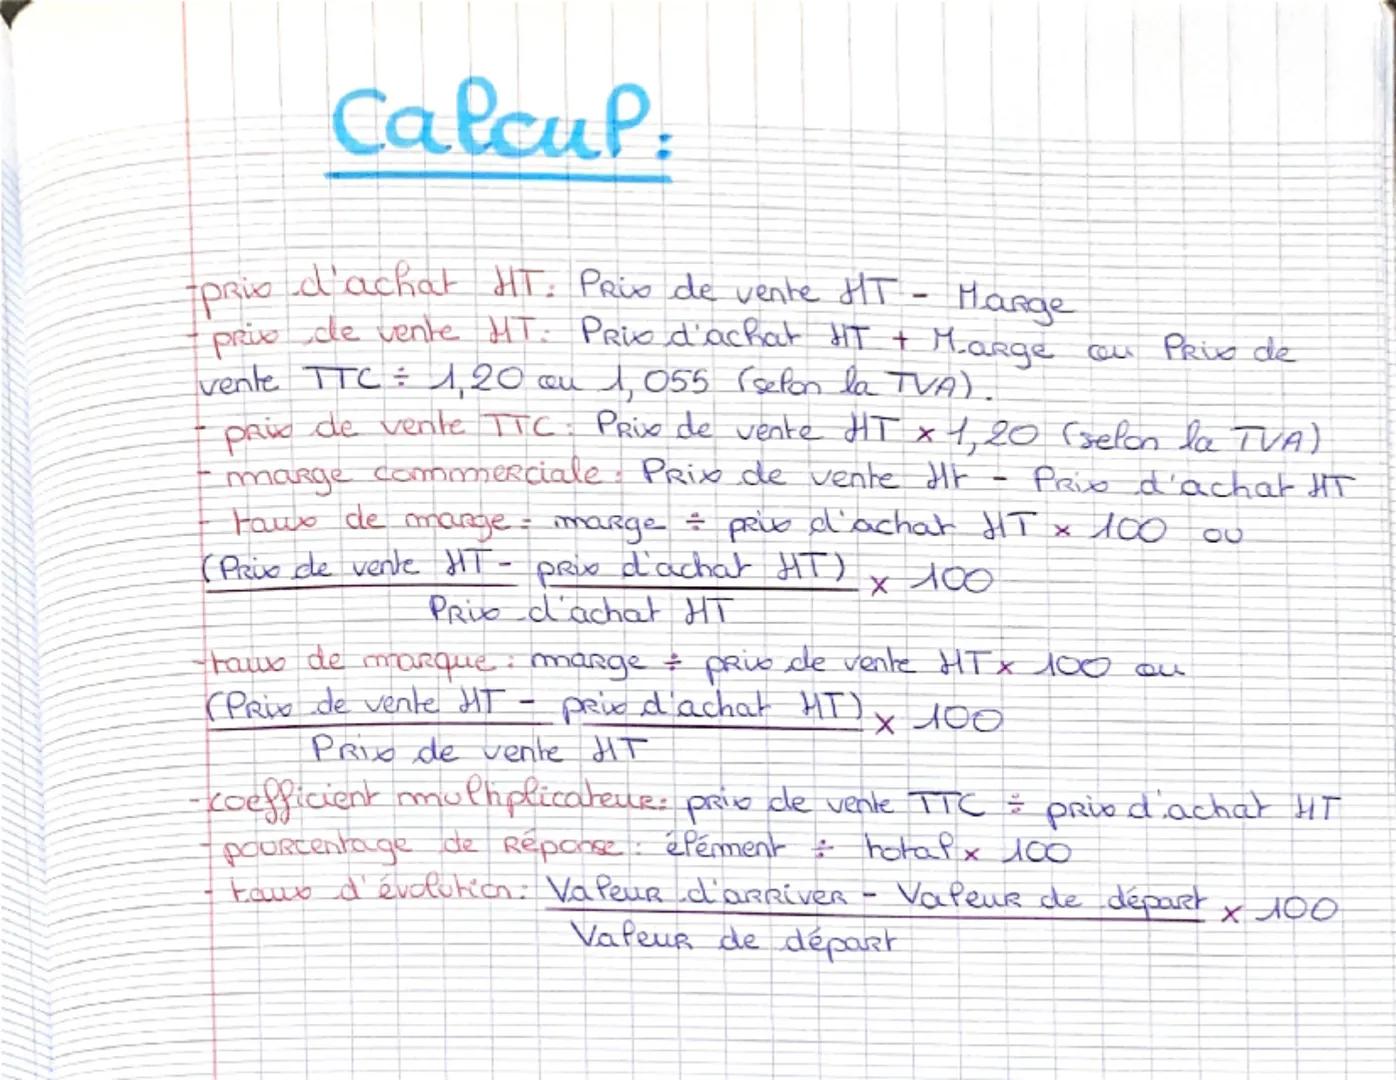 Calcul:
-prix d'achat HT: Prix de vente HT - Marge
- prix de vente HT: Prix d'achat HT + Marge ou Prix de
vente TTC ÷ 1,20 ou 1,055 (selon la TVA).
- prix de vente TTC: Prix de vente HT x 1,20 (selon la TVA)
- marge commerciale: Prix de vente Ht - Prix d'achat HT
- taux de marge = marge ÷ prix d'achat HT x 100 ou
(Prix de vente HT - prix d'achat HT) x 100
Prix d'achat HT
-taux de marque: marge ÷ prix de vente HT x 100 ou
(Prix de vente HT - prix d'achat HT) x 100
Prix de vente HT
-coefficient multiplicateur: prix de vente TTC ÷ prix d'achat HT
- pourcentage de réponse: élément ÷ total x 100
- taux d'évolution: Valeur d'arriver - Valeur de départ x 100
Valeur de départ